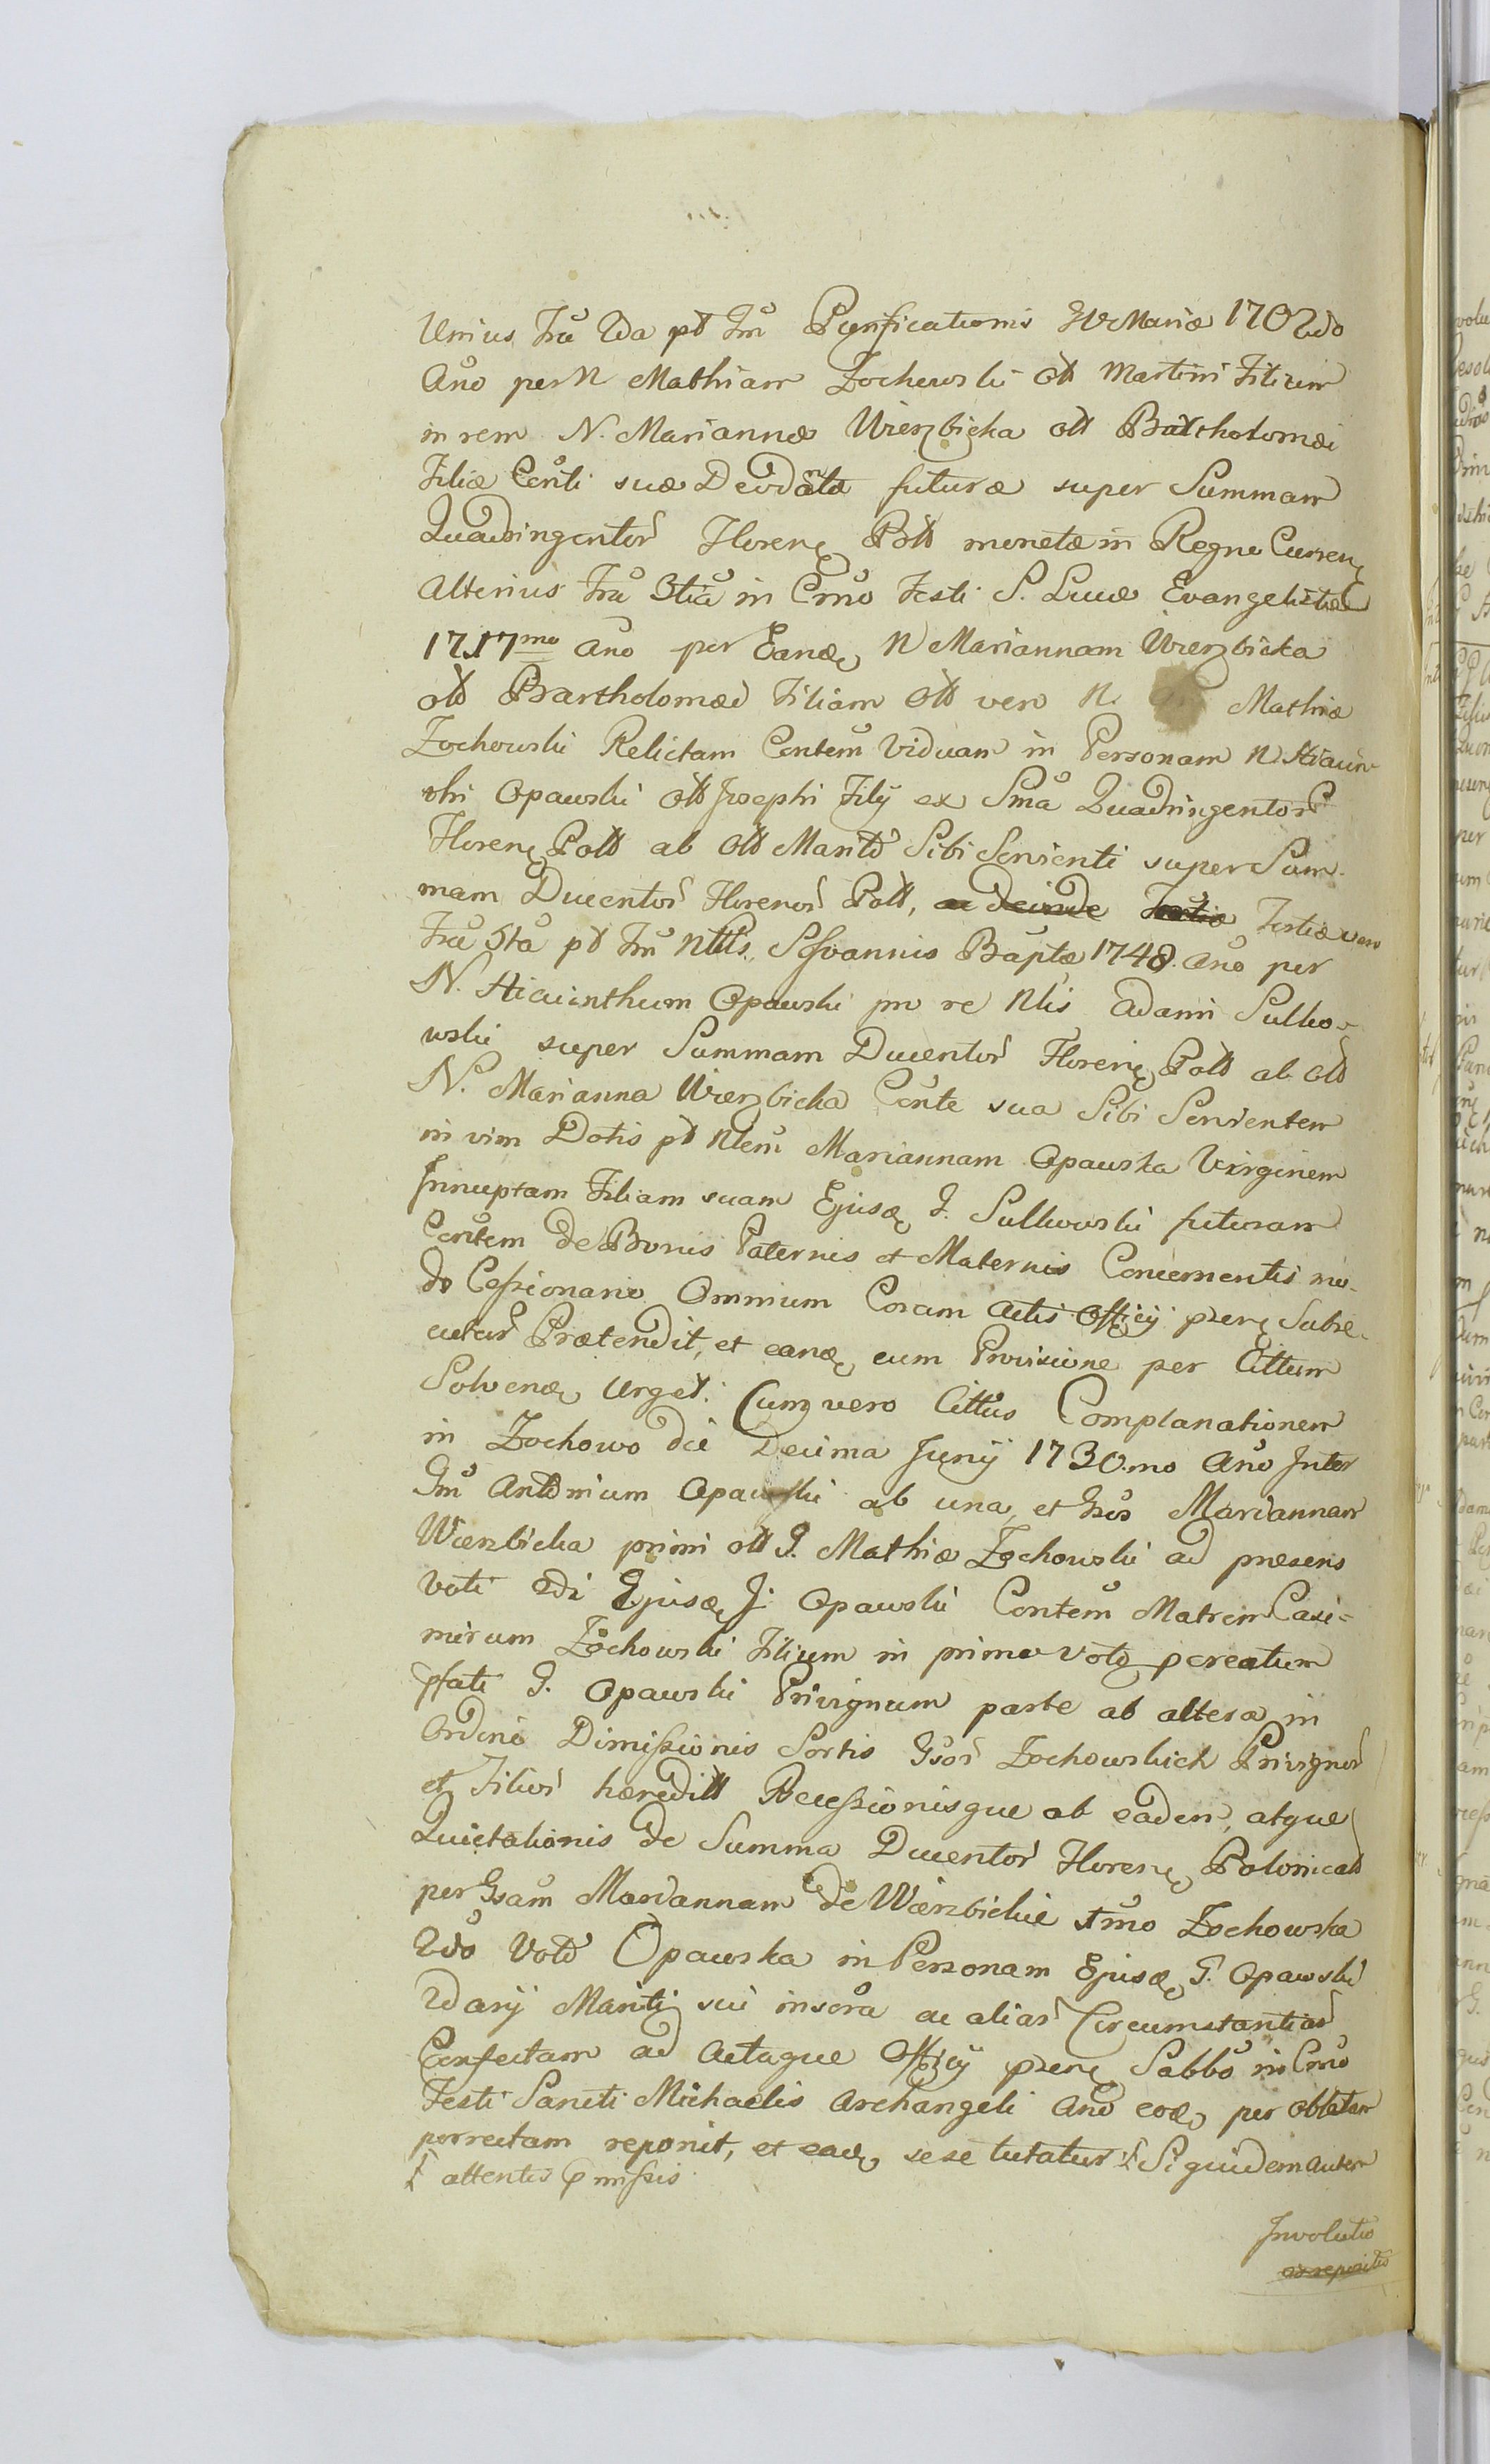 Unius Fra 2da pt Fm Purificationis BVMariæ 1702do
Año per N Mathiam Zochowski olt Martini Filium
in rem N. Mariannæ Wierzbicka olt Bartholomæi
Filiæ Cońti suæ Devotatæ futuræ super Summam
Quadringentor Floren Poll monetæ in Regno Curren
Alterius Fra 3tia in Crño Festi S. Lucæ Evangelistæ
1717mo Año per Eand N Mariannam Wierzbicka
olt Bartholomæi Filiam olt vero N. Mathiæ
Zochowski Relictam Contem Viduam in Personam N Hiacin
thi Opawski olt Josephi Filij ex Sma Quadringentor
Floren Poll ab olt Marito Sibi Servienti super Sum-
mam Ducentor Florenor Poll, ac deinde Tertiæ Tertiæ vero
Fra 5ta pt Fm Nttis S Joannis Baptæ 1748 Año per
N. Hiacinthum Opawski in re Nlis Adami Sulko-
wski super Summam Ducentor Floren Poll ab olt
N. Marianna Wierzbicka Cónte sua Sibi Servientem
in vim Dotis pt Nlem Mariannam Opawska Virginem
Innuptam Filiam suam Ejusd G. Sulkowski futuram
Contem de Bonis Paternis et Maternis Concernentis mo-
do Cessionario Omnium Coram Actis Officij pren Subse-
cutar Prætendit, et eand cum Provisione per Cittum
Solvend Urget. Cum vero Cittus Complanationem
in Zochowo die Decima Junij 1730.mo Año Inter
Gm Antonium Opawski ab una, et Gsos Mariannam
Wierzbicka primi olt G. Mathiæ Zochowski ad præsens
voti 2di Ejusd G. Opawski Contem Matrem Casi-
mirum Zochowski Filium in primo Voto pcreatum
pfati G. Opawski Privignum parte ab altera in
Ordine Dimissionis Sortis Gsor Zochowskich Privignor
et Filior hæreditt Recessionisque ab eadem, atque
Quietationis de Summa Ducentor Floren Polonical
per Gsam Mariannam de Wierzbickie 1mo Zochowska
2do Voto Opawska in Personam Ejusd G. Opawski
2darij Mariti sui inscra ac aliar Circumstantiar
Confectam ad Actaque Officij pren Sabbo in Crño
Festi Sancti Michaelis Archangeli Año eod per oblatam
porrectam reponit, et ead sese tutatur Siquidem autem
attentis pmissis
Involutio